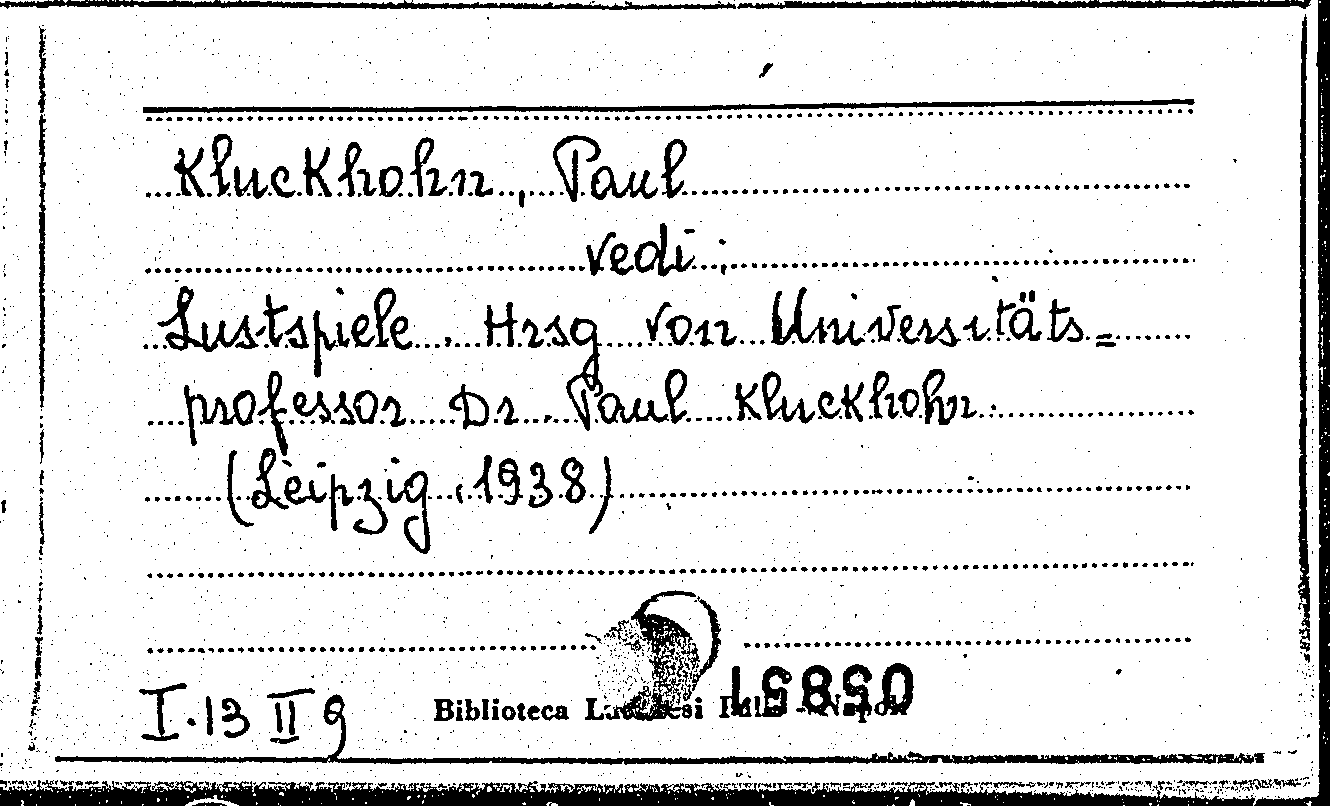 Kluckhohn, Paul
vedi:
Lustspiele. Hrsg von Universitäts=
professor Dr. Paul Kluckhohn.
(Leipzig, 1938)
I.13 II 9
Biblioteca - Napoli